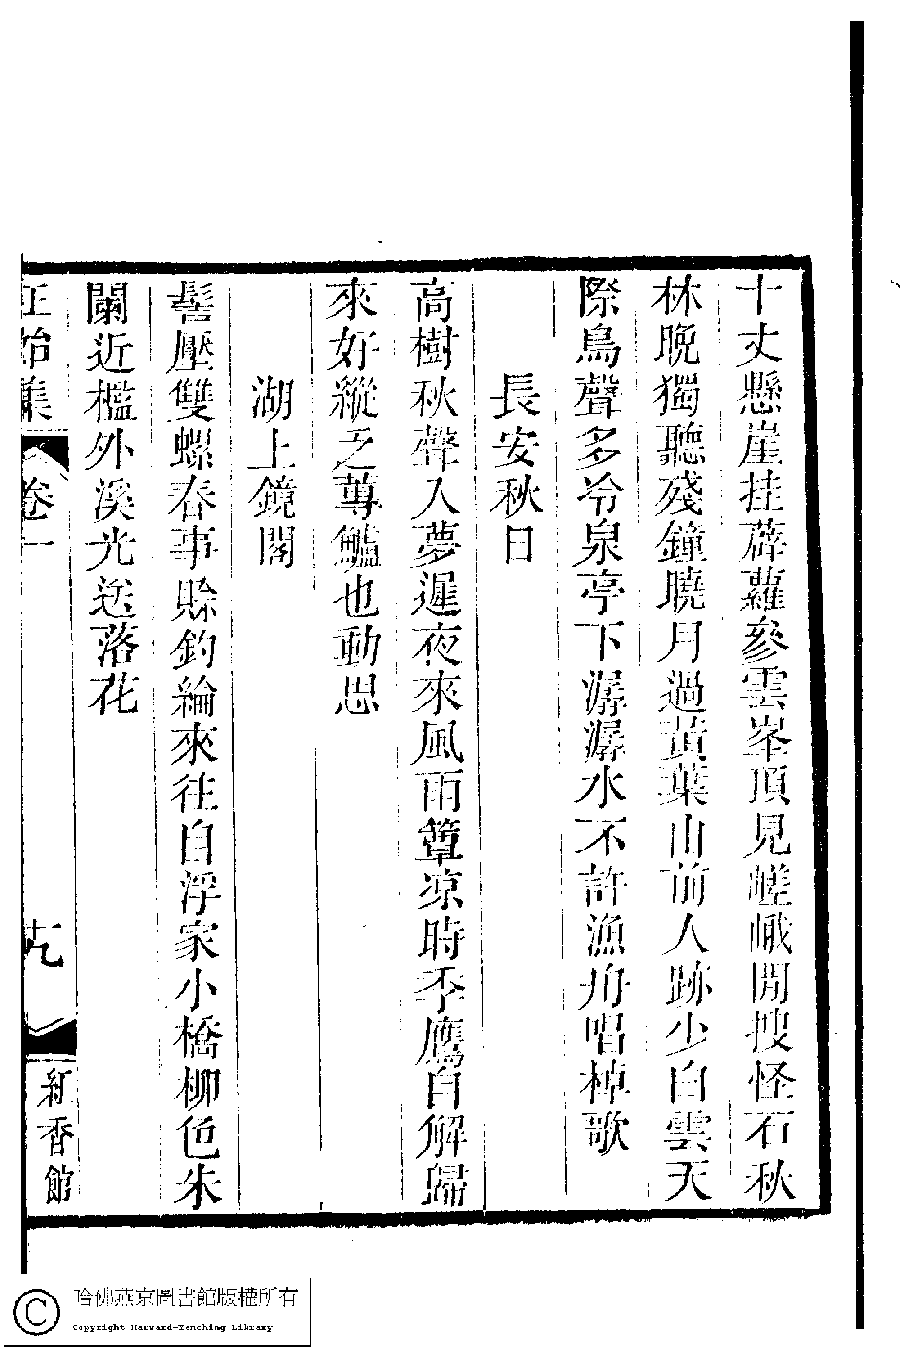 十丈懸崖挂薜蘿參雲峯頂見嵯峨閒搜怪石秋
林晚獨聽殘鐘曉月過黃葉山前人跡少白雲天
際鳥聲多冷泉亭下潺潺水不許漁舟唱棹歌
長安秋日
高樹秋聲入夢遲夜來風雨簟凉時季鷹自解歸
來好縱乏蓴鱸也動思
湖上鏡閣
髻壓雙螺春事賒釣綸來往自浮家小橋柳色朱
闌近檻外溪光送落花
正始集
卷一
紅香館
哈佛燕京圖書館版權所有
Copyright Harvard-Yenching Library